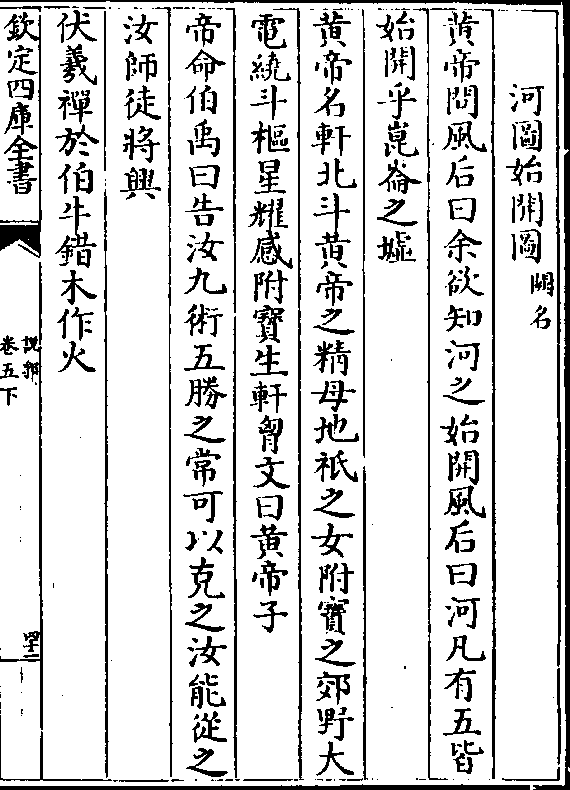 河圖始開圖 闕名
黄帝問風后曰余欲知河之始開風后曰河凡有五皆
始開乎崑崙之墟
黄帝名軒北斗黄帝之精母地祇之女附寶之郊野大
電繞斗樞星耀感附寶生軒胷文曰黄帝子
帝命伯禹曰告汝九術五勝之常可以克之汝能從之
汝師徒將興
伏羲禪於伯牛錯木作火
欽定四庫全書
說郛
卷五下